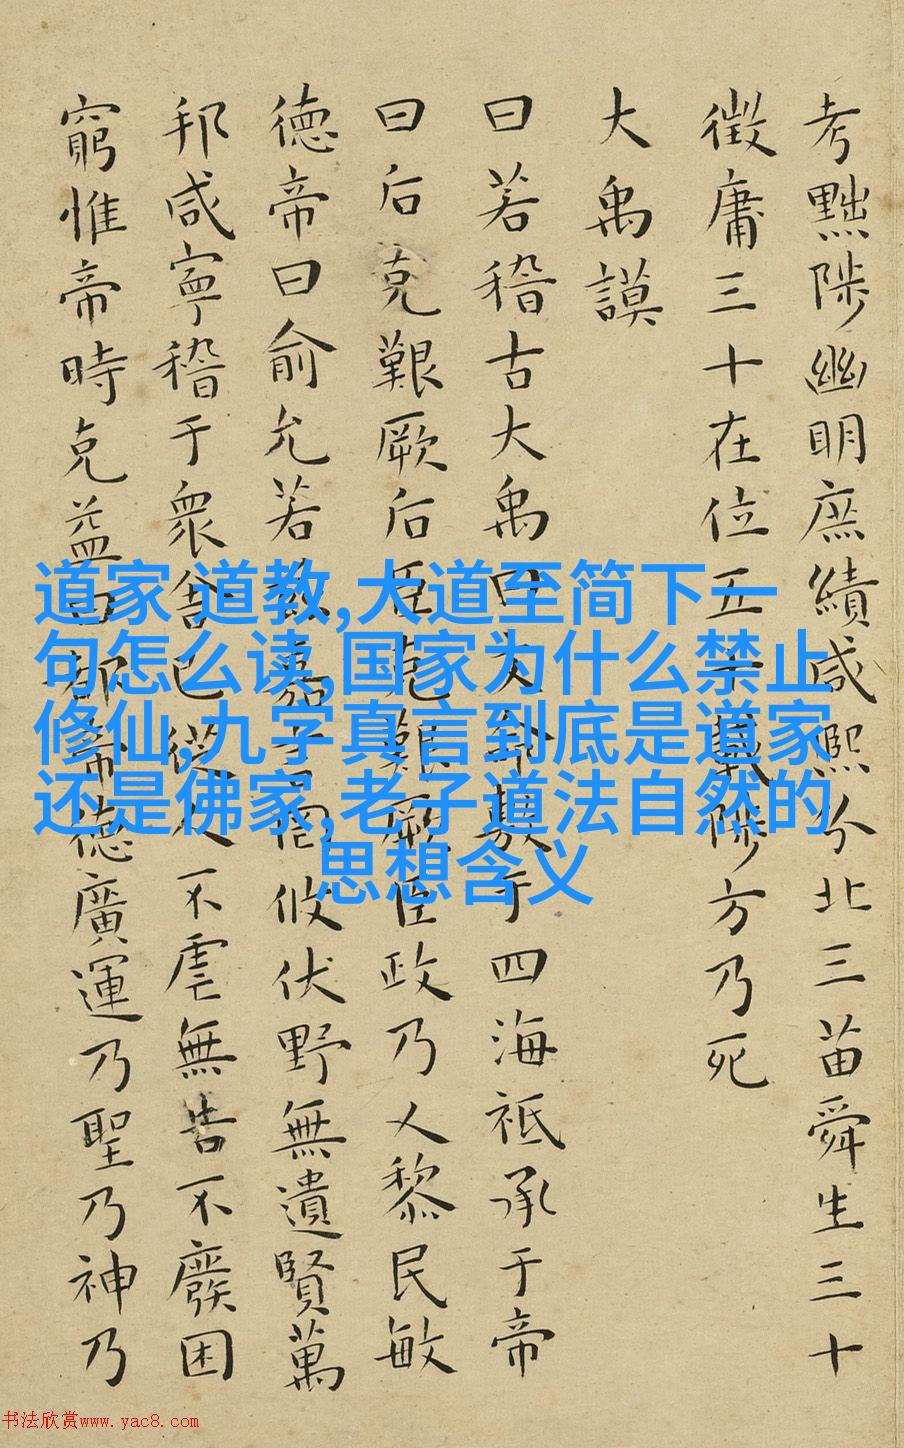 考黜陟幽明庶績咸熙分北三苗舜生三十
徵庸三十在位五十載陟方乃死
大禹謨
曰若稽古大禹曰文命敷于四海祗承于帝
曰后克艱厥后臣克艱厥臣政乃乂黎民敏
德帝曰俞允若茲嘉言罔攸伏野無遺賢萬
邦咸寧稽于衆舍己從人不虐無告不廢困
窮惟帝時克益曰都帝德廣運乃聖乃神乃
道家 道教,大道至简下一
句怎么读,国家为什么禁止
修仙,九字真言到底是道家
还是佛家,老子道法自然的
思想含义
书法欣赏www.yac8.com